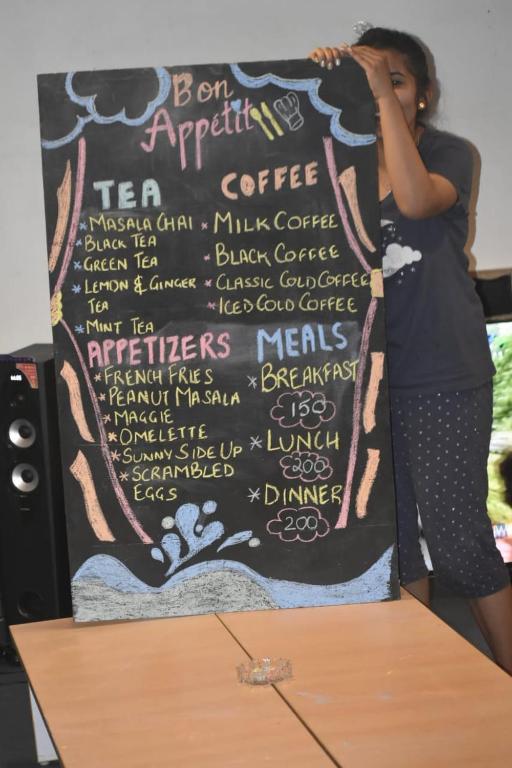 Bon
Appétit
TEA
* MASALA CHAI
* BLACK TEA
* GREEN TEA
* LEMON & GINGER
TEA
* MINT TEA
COFFEE
* MILK COFFEE
* BLACK COFFEE
* CLASSIC COLD COFFEE
* ICED COLD COFFEE
APPETIZERS
* FRENCH FRIES
* PEANUT MASALA
* MAGGIE
* OMELETTE
* SUNNY SIDE UP
* SCRAMBLED
EGGS
MEALS
* BREAKFAST
150
* LUNCH
200
* DINNER
200